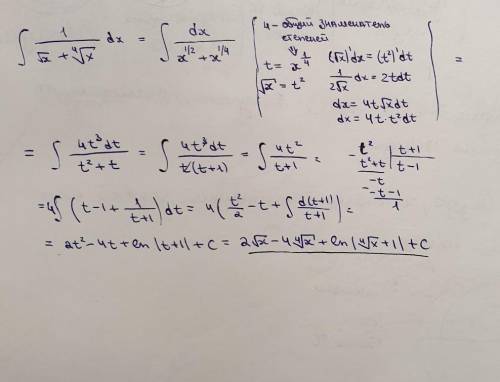 ∫ 1/(√x + ∜x) dx = ∫ dx/(x^{1/2} + x^{1/4}) | 4 - общий знаменатель степеней | =
t = x^{1/4} (√x)'dx = (t²)'dt
√x = t² 1/(2√x) dx = 2tdt
dx = 4t√x dt
dx = 4t·t²dt
= ∫ 4t³dt/(t²+t) = ∫ 4t³dt/(t(t+1)) = ∫ 4t²/(t+1) =
t² | t+1
t²+t | t-1
-t
-t-1
1
=4∫ (t-1+ 1/(t+1)) dt = 4(t²/2 - t + ∫ d(t+1)/(t+1)) =
= 2t²-4t+ln|t+1|+C = 2√x-4∜x+ln|∜x+1|+C